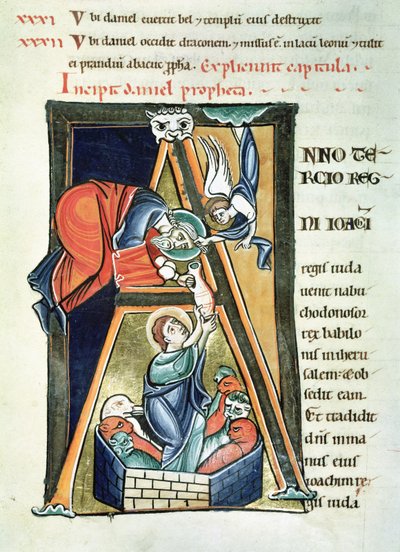 XXXI Vbi daniel euertit bel ⁊ templũ eius destruxit
XXXII Vbi daniel occidit draconem. ⁊ missus ẽ in lacũ leonũ ⁊ tulit
ei prandiũ abacuc ꝓpha. Expliciunt capitula.
Incipit daniel propheta.
ANNO TE
RCIO REG
NI IOACHI
regis iuda
uenit nabu
chodonosor
rex babilo
nis in iheru
salem & ob
sedit eam.
Et tradidit
dñs in ma
nus eius
ioachim re
gis iuda